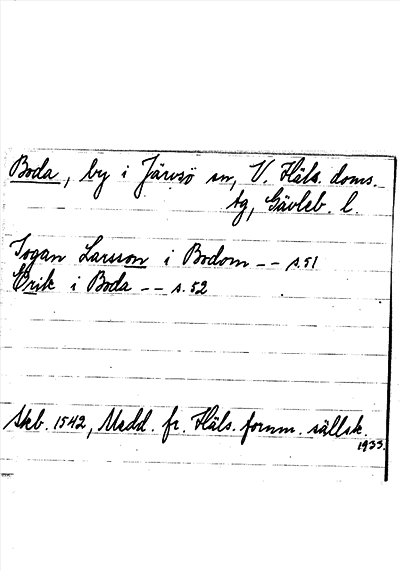 Boda, by i Järvsö sn, V. Häls. doms.
sg, Gävleb. l.
Jogan Larsson i Bodom -- s. 51
Erik i Boda -- s. 52
Skb. 1542, Medd. fr. Häls. fornm. sällsk.
1933.